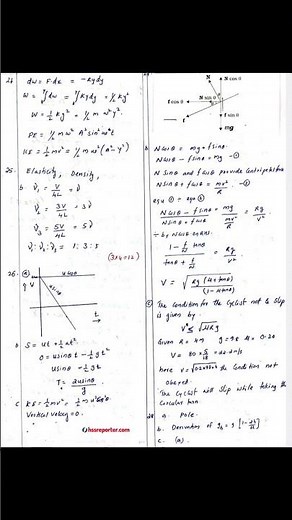 24. dw = F.dx = -Kydy
W = ∫dw = ∫Kydy = ½Ky²
W = ½Ky² = ½ m ω² y²
PE = ½ m ω² A² sin² ωt
KE = ½mv² = ½ mω² (A² - y²)
25. Elasticity, Density,
b V₁ = V/4L = ν
V₂ = 3V/4L = 3ν
V₃ = 5V/4L = 5ν
V₁ : V₂ : V₃ = 1 : 3 : 5
(3×4=12)
26. a
V
t
b S = ut + ½at²
0 = usinθt - ½gt²
usinθ - ½gt
T = 2usinθ/g
c KE = ½mv² =
Vertical velocity = 0.
hssreporter.com
N
N cosθ
N sinθ
f cosθ
f
f sinθ
mg
b Ncosθ = mg + fsinθ
Ncosθ - fsinθ = mg -①
N sinθ and f cosθ provide centripetal force
Nsinθ + fcosθ = mv²/R -②
eqn ① ÷ eqn ②
Ncosθ - fsinθ / Nsinθ + fcosθ = mg / mv²/R = Rg/V²
÷ by Ncosθ on RHS.
1 - f/N tanθ / tanθ + f/N = Rg/V²
V = √Rg(μ + tanθ)/(1 - μtanθ)
c The Condition for the Cyclist not to Slip
is given by
V² ≤ √μRg
Given R = g = 9.8 μ = 0.20
V = 80 × 5/18 = 22.2 m/s
here the Condition not
obeyed.
The cyclist will Slip while taking the
Circular turn.
28 a. pole.
b. Derivation of
c. (a).